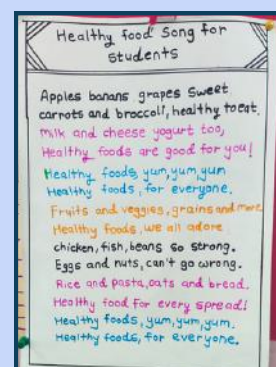 Healthy food Song for
Students
Apples banans grapes sweet
carrots and broccoli, healthy to eat.
Milk and cheese yogurt too,
Healthy foods are good for you!
Healthy foods, yum, yum, yum
Healthy foods, for everyone.
Fruits and veggies, grains and more
Healthy foods, we all adore
chicken, fish, beans so strong.
Eggs and nuts, can't go wrong.
Rice and pasta, oats and bread.
Healthy food for every spread!
Healthy foods, yum, yum, yum.
Healthy foods, for everyone.